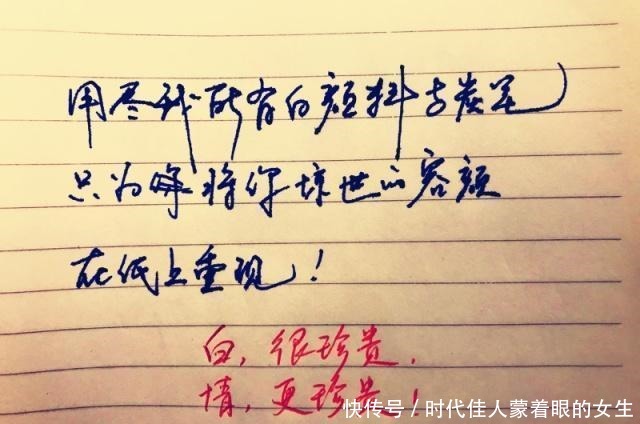 用尽我所有的颜料与炭笔
只为将你惊世的容颜
在纸上重现！
白，很珍贵，
情，更珍贵！
快传号／时代佳人蒙着眼的女生